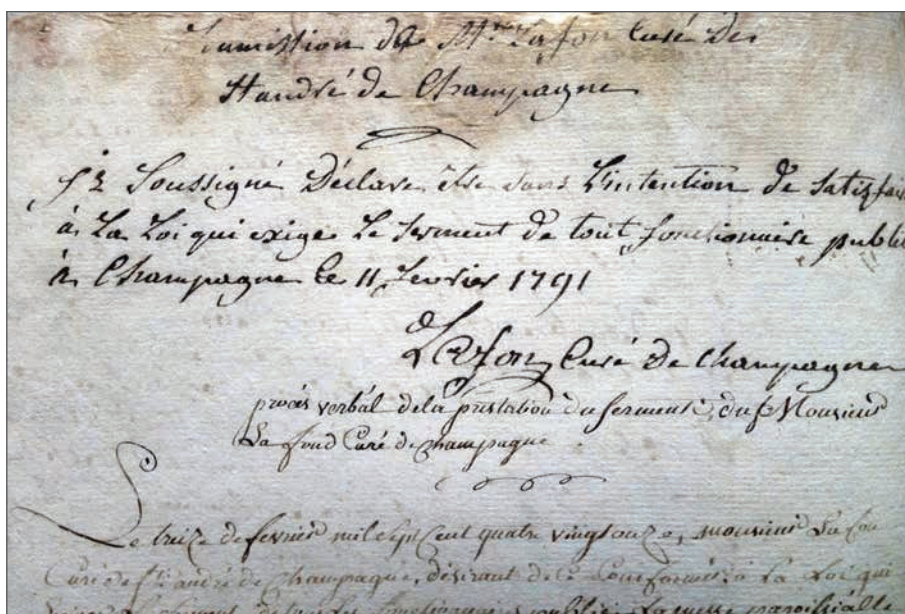 de Mr Lafon Curé de
St andré de Champagne
je Soussigné Déclare être dans L'intention de satisfaire
à La Loi qui exige Le serment de tout fonctionnaire public
à Champagne le 11 fevrier 1791
Lafon Curé de Champagne
procés verbal de la prestation du serment du Monsieur
La fond Curé de Champagne
Le treize de fevrier mil sept Cent quatre vingt onze, monsieur La fon
Curé de St andré de Champagne, désirant de se Conformer à La Loi qui
serment de tous les fonctionnaires publics La messe paroissialle